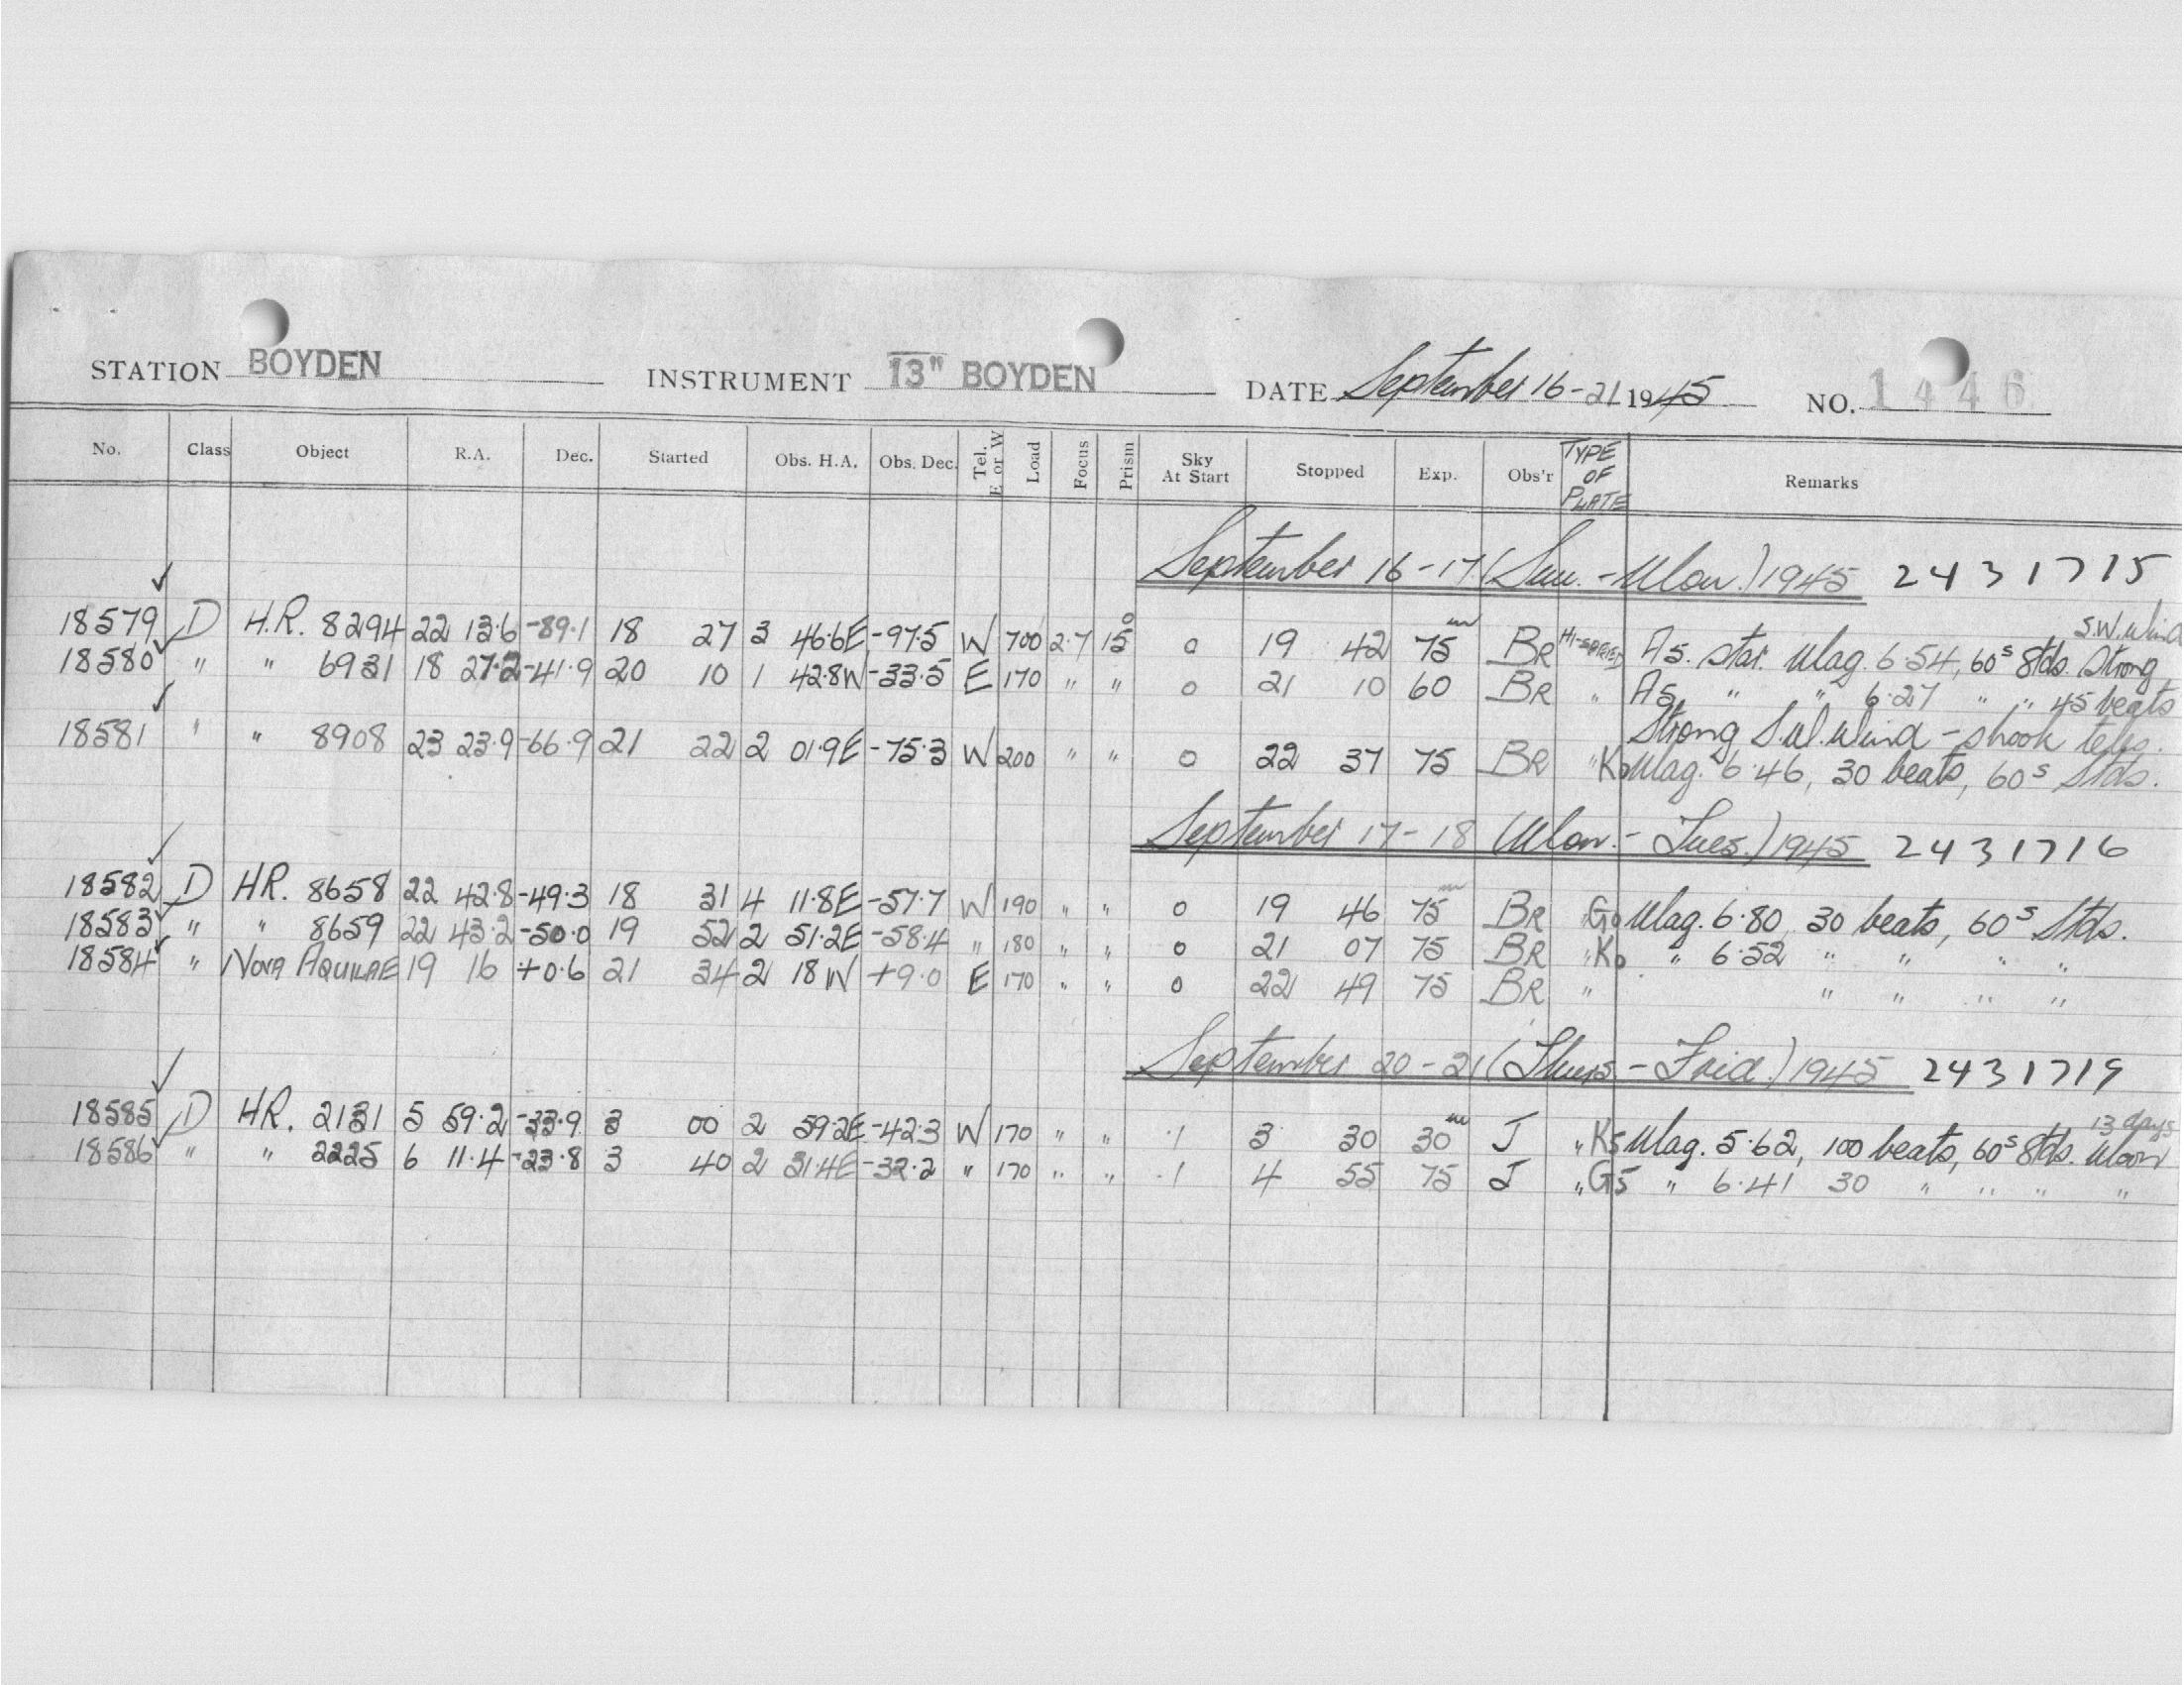 STATION BOYDEN INSTRUMENT 13" BOYDEN DATE September 16-21 1945 NO. 1446
No. Class Object R.A. Dec. Started Obs. H.A. Obs. Dec. Tel. E or W Load Focus Prism Sky At Start Stopped Exp. Obs'r TYPE OF PLATE Remarks
September 16-17 (Sun.-Mon.) 1945 2431715
S.W. Wind
18579 D H.R. 8294 22 13.6 -89.1 18 27 3 46.6E -97.5 W 700 2.7 15° 0 19 42 75m BR HI-SPEED A5. star. Mag. 6.54, 60s Stds. Strong
18580 " " 6931 18 27.2 -41.9 20 10 1 42.8W -33.5 E 170 " " 0 21 10 60 BR " A5 " " 6.27 " " 45 beats
Strong S.W. Wind - shook teles.
18581 " " 8908 23 23.9 -66.9 21 22 2 01.9E -75.3 W 200 " " 0 22 37 75 BR " K0 Mag. 6.46, 30 beats, 60s Stds.
September 17-18 (Mon.- Tues.) 1945 2431716
18582 D HR. 8658 22 42.8 -49.3 18 31 4 11.8E -57.7 W 190 " " 0 19 46 75m BR " G0 Mag. 6.80, 30 beats, 60s Stds.
18583 " " 8659 22 43.2 -50.0 19 52 2 51.2E -58.4 " 180 " " 0 21 07 75 BR " K0 " 6.52 " " " "
18584 " NOVA AQUILAE 19 16 +0.6 21 34 2 18W +9.0 E 170 " " 0 22 49 75 BR " " " " "
September 20-21 (Thurs.-Frid.) 1945 2431719
13 days
18585 D HR. 2131 5 59.2 -33.9 3 00 2 59.2E -42.3 W 170 " " .1 3 30 30m J " K5 Mag. 5.62, 100 beats, 60s Stds. Moon
18586 " " 2225 6 11.4 -23.8 3 40 2 31.4E -32.2 " 170 " " .1 4 55 75 J " G5 " 6.41 30 " " " "